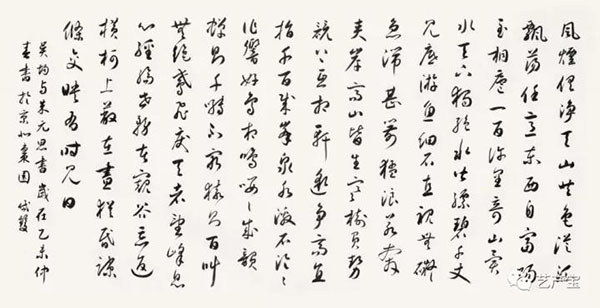 風煙俱淨天山共色從流
飄蕩任意東西自富陽
至桐廬一百許里奇山異
水天下獨絕水皆縹碧千丈
見底游魚細石直視無礙
急湍甚箭猛浪若奔
夾岸高山皆生寒樹負勢
競上互相軒邈爭高直
指千百成峯泉水激石泠泠
作響好鳥相鳴嚶嚶成韻
蟬則千轉不窮猿則百叫
無絕鳶飛戾天者望峰息
心經綸世務者窺谷忘返
橫柯上蔽在晝猶昏疎
條交映有時見日
吳均與朱元思書 歲在乙未仲
春書於京北
艺产宝